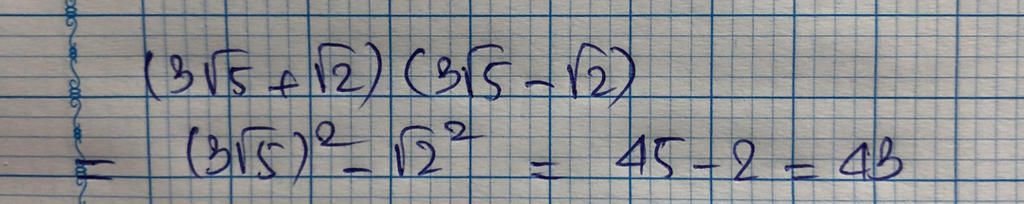 (3√5 + √2) (3√5 - √2)
= (3√5)² - √2² = 45 - 2 = 43